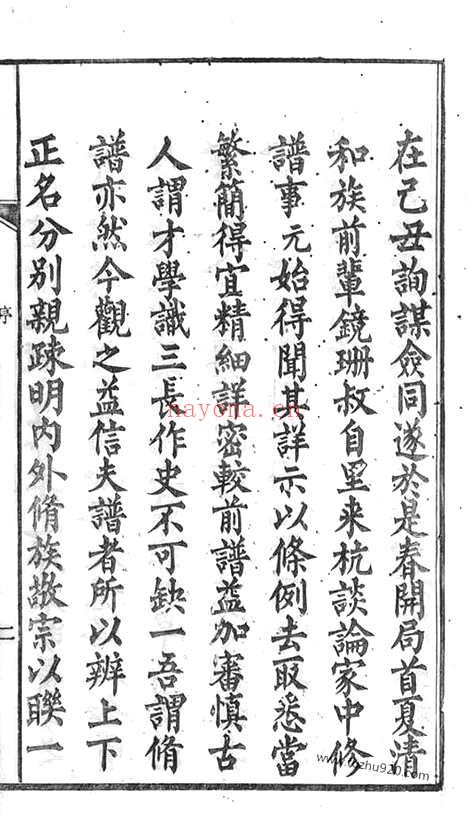 在己丑詢謀僉同遂於是春開局首夏清
和族前輩鏡珊叔自里来杭談論家中修
譜事元始得聞其詳示以條例去取悉當
繁簡得宜精細詳密較前譜益加審慎古
人謂才學識三長作史不可缺一吾謂脩
譜亦然今觀之益信夫譜者所以辨上下
正名分别親疎明内外脩族敬宗以聯一
序
二
nayona.cn
www.jzhu920.com